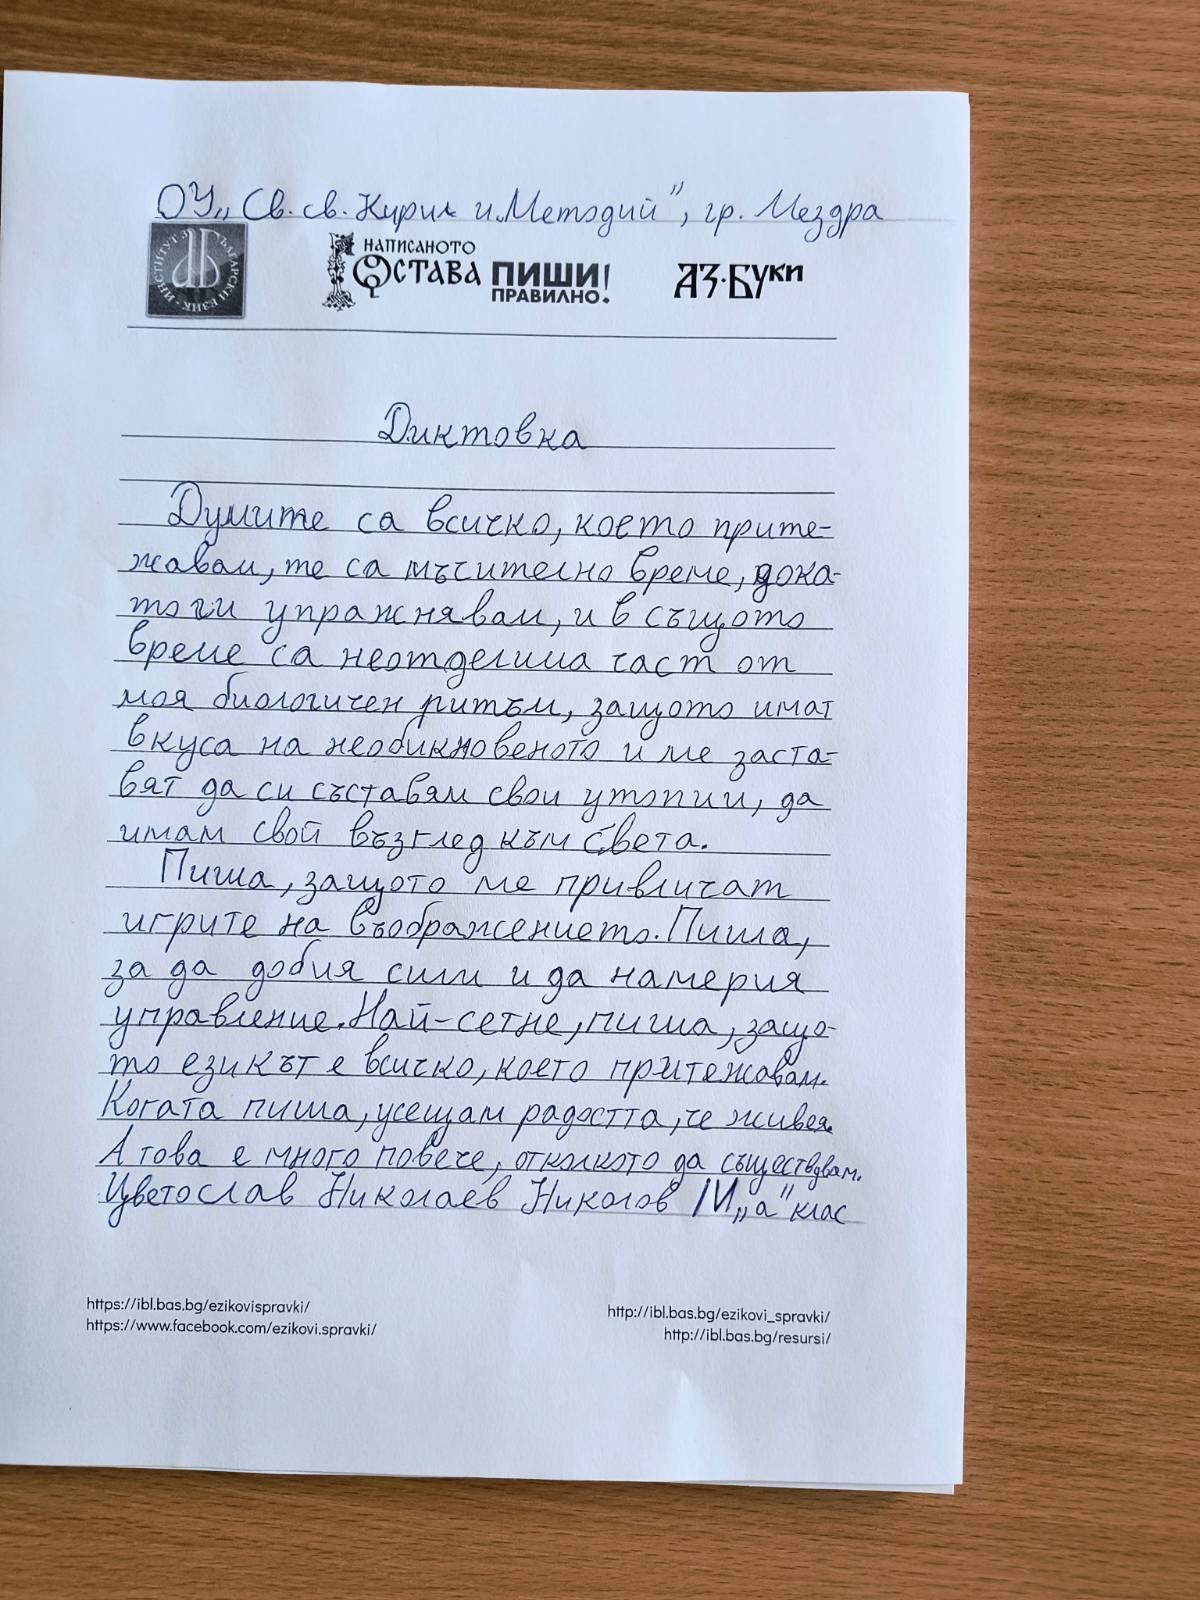 ОУ„Св. св. Кирил и Методий", гр. Мездра
ИНСТИТУТ ЗА БЪЛГАРСКИ ЕЗИК
НАПИСАНОТО
ОСТАВА ПИШИ
ПРАВИЛНО!
АЗ·БУКИ
Диктовка
Думите са всичко, което прите-
жавам, те са мъчително време, дока-
то ги упражнявам, и в същото
време са неотделима част от
моя биологичен ритъм, защото имат
вкуса на необикновеното и ме заста-
вят да си съставям свои утопии, да
имам свой възглед към света.
Пиша, защото ме привличат
игрите на въображението. Пиша,
за да добия сили и да намеря
управление. Най-сетне, пиша, защо-
то езикът е всичко, което притежавам.
Когата пиша, усещам радостта, че живея.
А това е много повече, отколкото да съществувам.
Цветослав Николаев Николов VI „а" клас
https://ibl.bas.bg/ezikovispravki/
https://www.facebook.com/ezikovi.spravki/
http://ibl.bas.bg/ezikovi_spravki/
http://ibl.bas.bg/resursi/